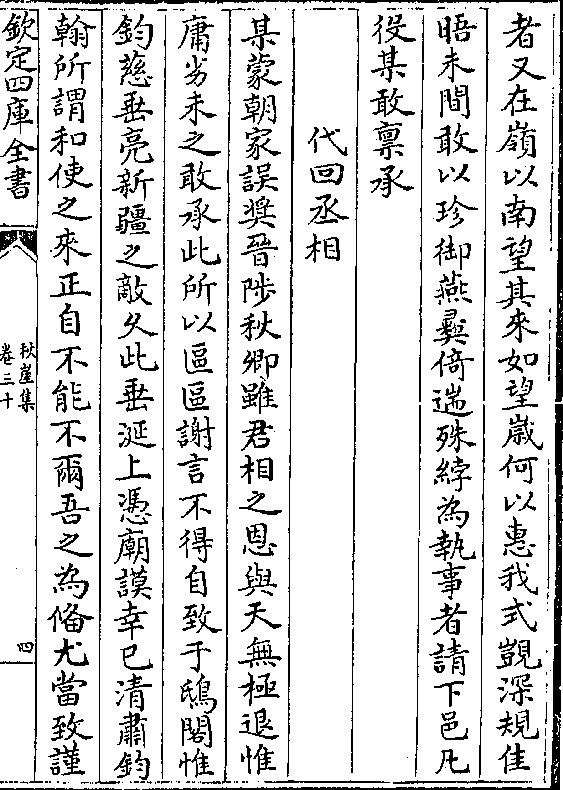 者又在嶺以南望其來如望嵗何以惠我式覬深規佳
晤未間敢以珍御燕彞倚遄殊綍為執事者請下邑凡
役某敢禀承
代回丞相
某蒙朝家誤奨晉陟秋卿雖君相之恩與天無極退惟
庸劣未之敢承此所以區區謝言不得自致于鴟閣惟
鈞慈垂亮新疆之敵久此垂涎上憑廟謨幸已清肅鈞
翰所謂和使之來正自不能不爾吾之為僃尤當致謹
欽定四庫全書
秋崖集
卷三十
四